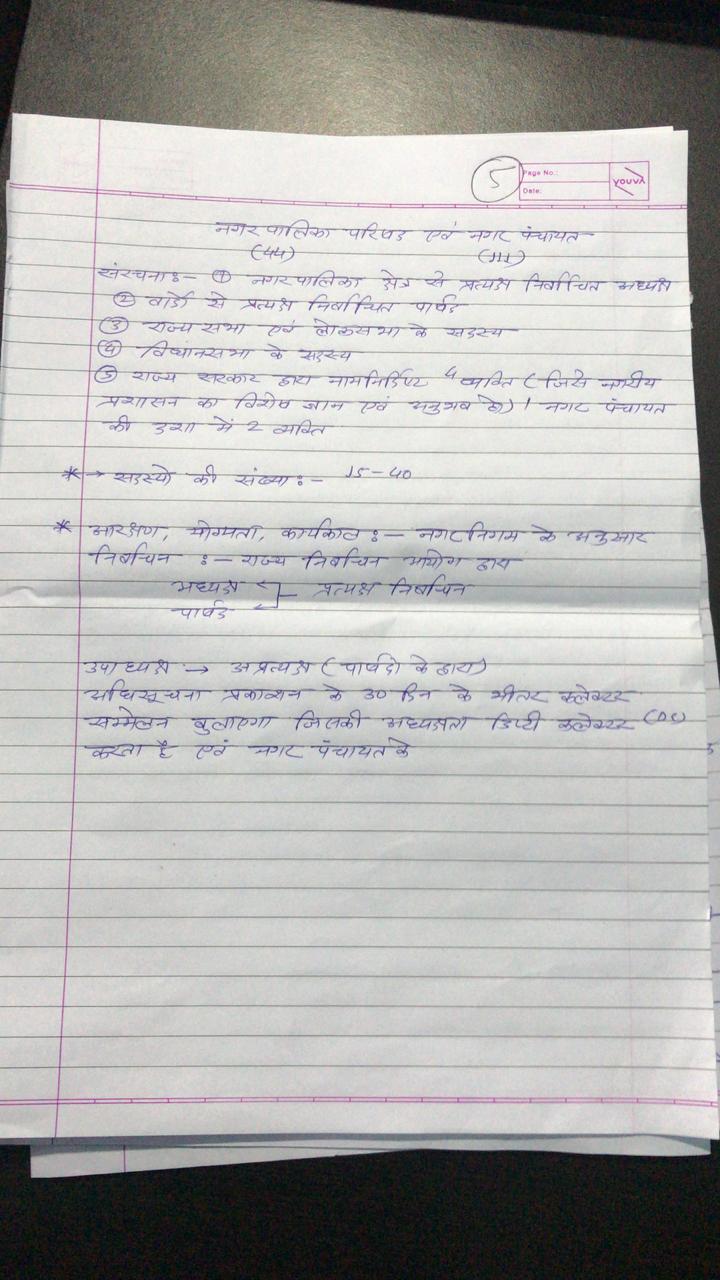 5
Page No.:
Date:
youva
नगरपालिका परिषद एवं नगर पंचायत
(44) (111)
संरचनाः- ① नगरपालिका क्षेत्र से प्रत्यक्ष निर्वाचित अध्यक्ष
② वार्डो से प्रत्यक्ष निर्वाचित पार्षद
③ राज्य सभा एवं लोकसभा के सदस्य
④ विधानसभा के सदस्य
⑤ राज्य सरकार द्वारा नामनिर्दिष्ट 4 व्यक्ति (जिसे नगरीय
प्रशासन का विशेष ज्ञान एवं अनुभव हो) । नगर पंचायत
की दशा में 2 व्यक्ति
* → सदस्यो की संख्याः- 15-40
* आरक्षण, योग्यता, कार्यकाल :- नगरनिगम के अनुसार
निर्वाचन :- राज्य निर्वाचन आयोग द्वारा
अध्यक्ष प्रत्यक्ष निर्वाचन
पार्षद
उपाध्यक्ष → अप्रत्यक्ष (पार्षदो के द्वारा)
अधिसूचना प्रकाशन के 30 दिन के भीतर कलेक्टर
सम्मेलन बुलाएगा जिसकी अध्यक्षता डिप्टी कलेक्टर (DC)
करता है एवं नगर पंचायत के